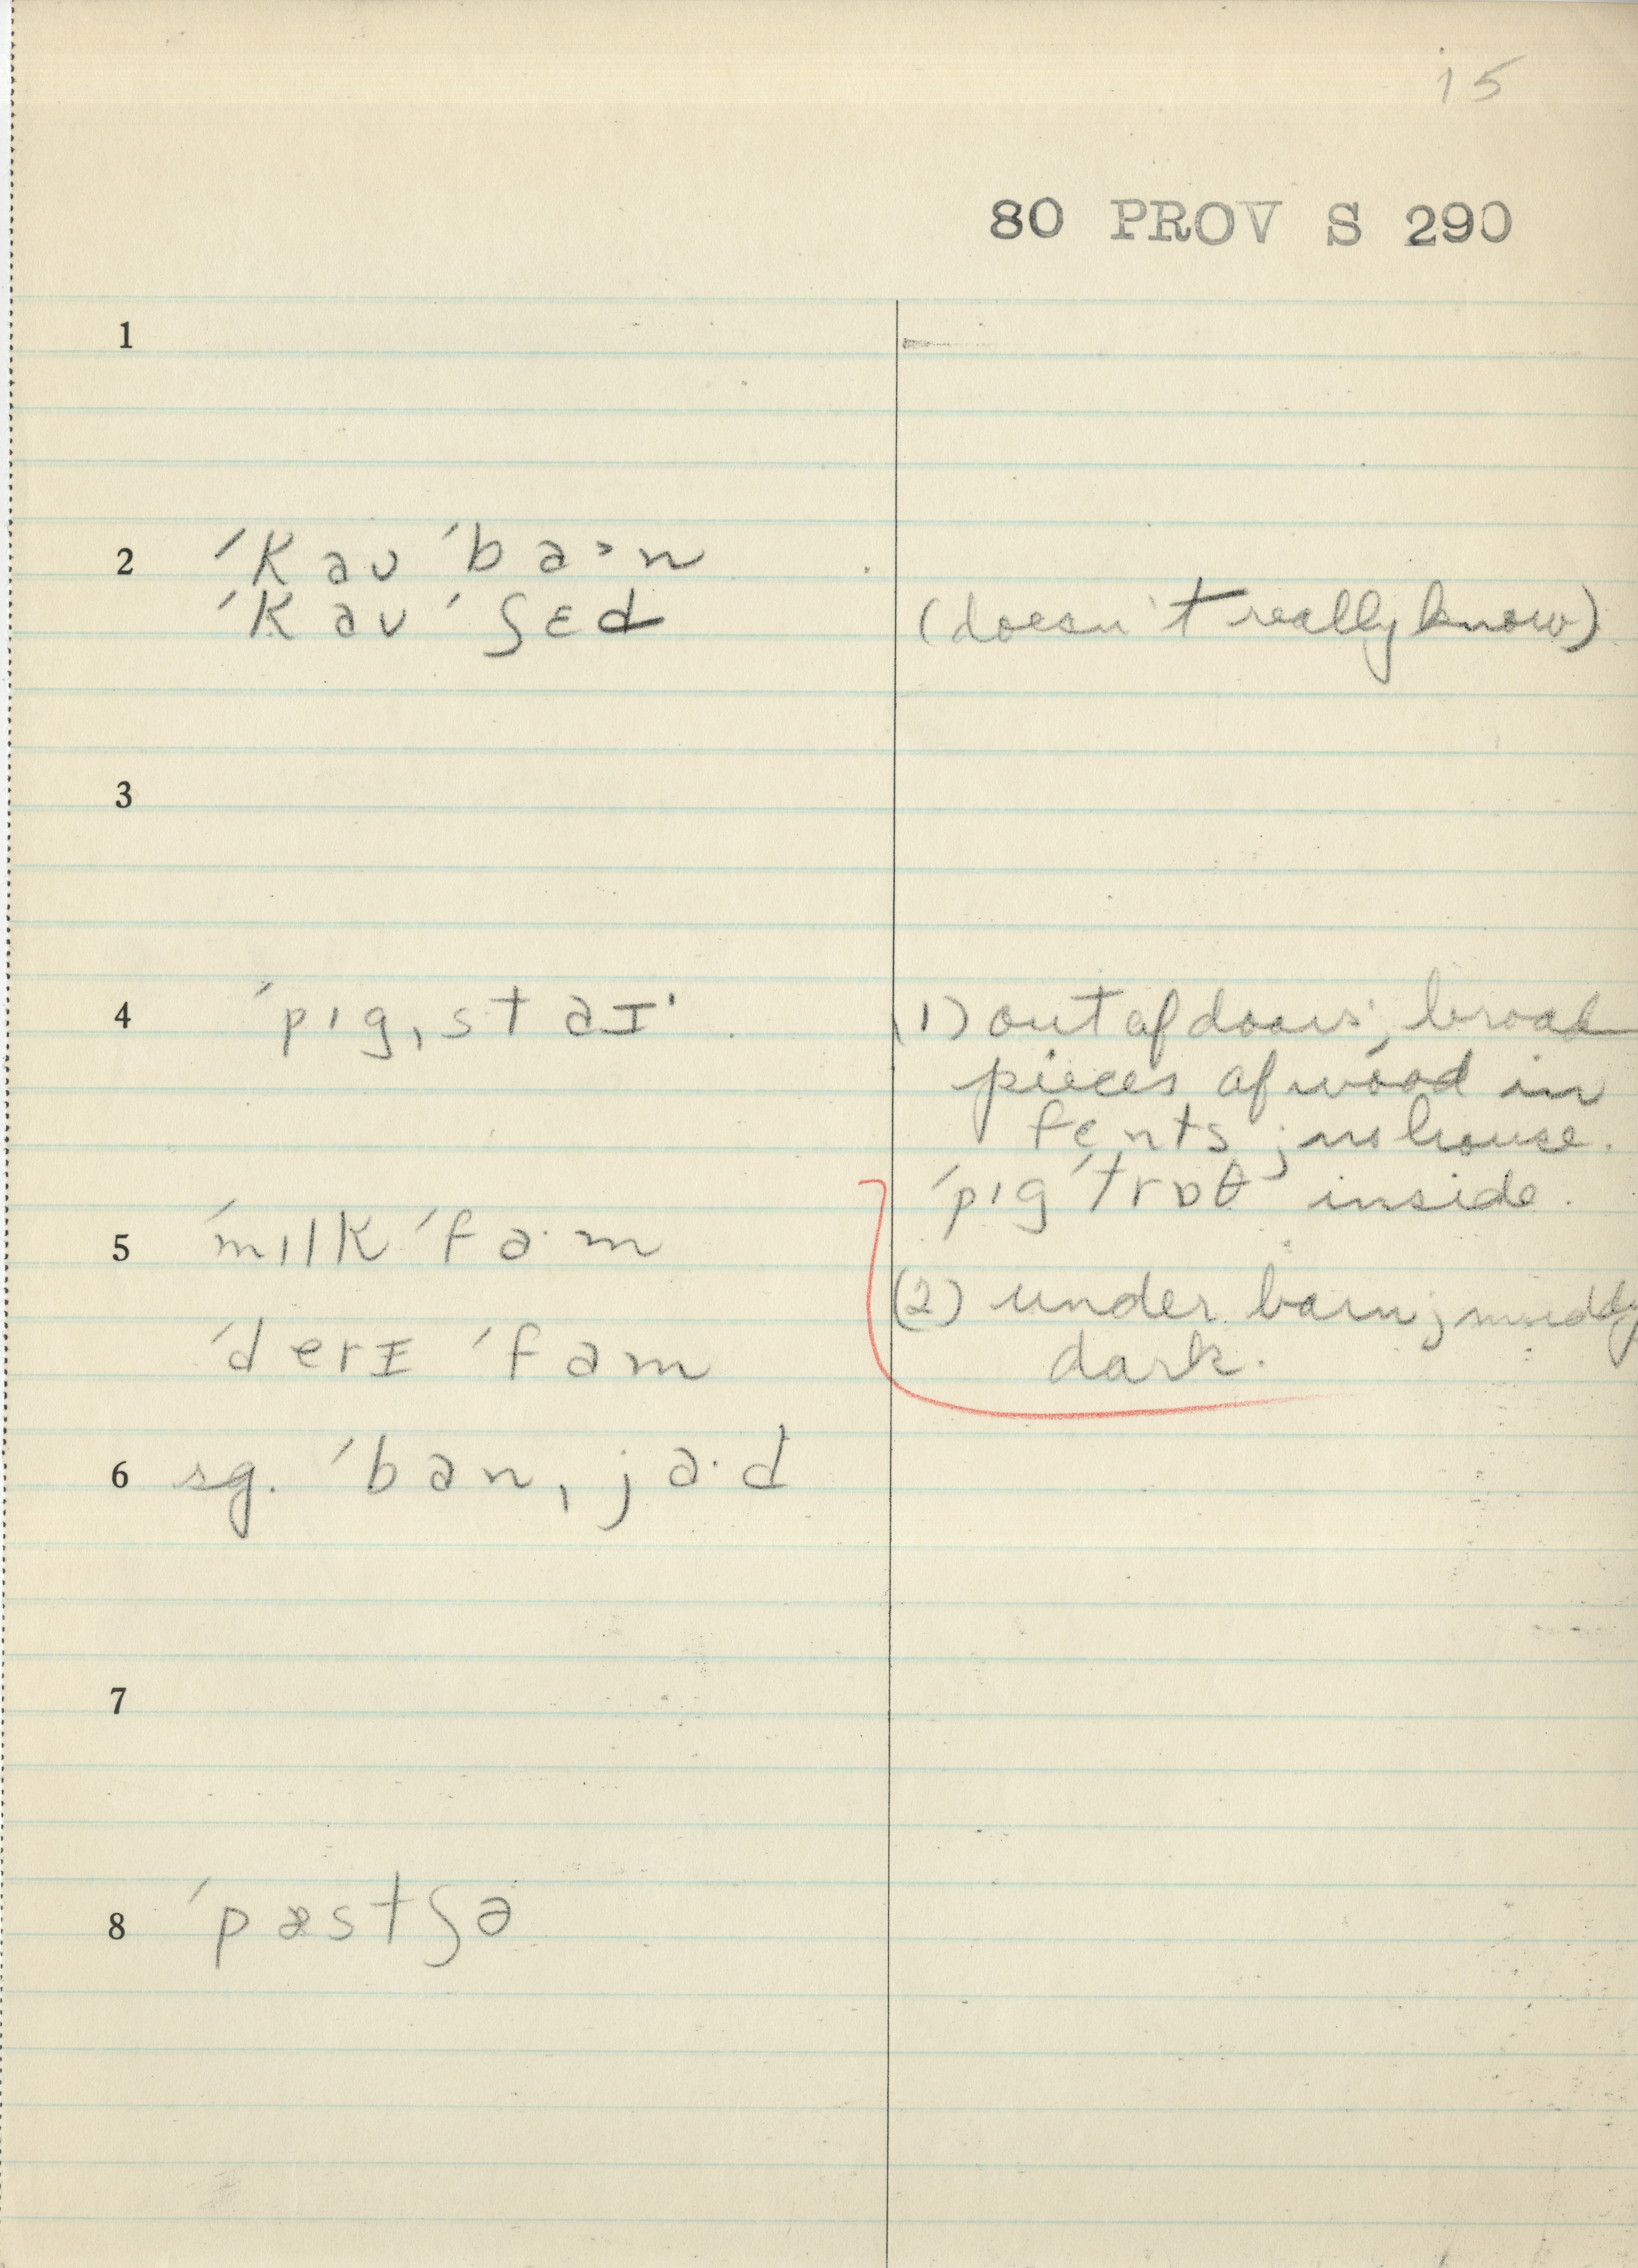 15
80 PROV S 290
1
2 ˈkaʊ ˈba˃n
ˈkaʊ ˈʃɛd (doesn't really know)
3
4 ˈpɪgˌstaɪˑ (1) out of doors; broad
pieces of wood in
fents; no house.
ˈpɪg ˈtrɒθ inside.
5 ˈmɪlk ˈfaˑm
(2) under barn; muddy
ˈderɪ ˈfam dark.
6 sg. ˈbanˌjaˑd
7
8 ˈpæstʃə